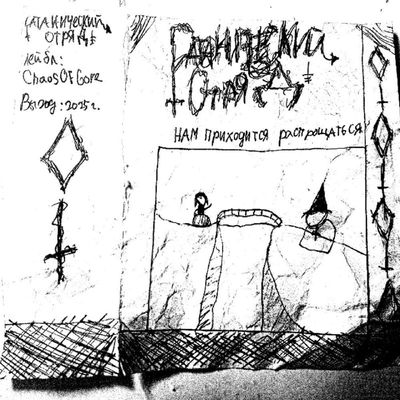 САТАНИЧЕСКИЙ
ОТРЯД
Лейбл:
ChaosOfGore
Выход: 2025 г.
Сатанинский
Отряд
НАМ приходится распрощаться